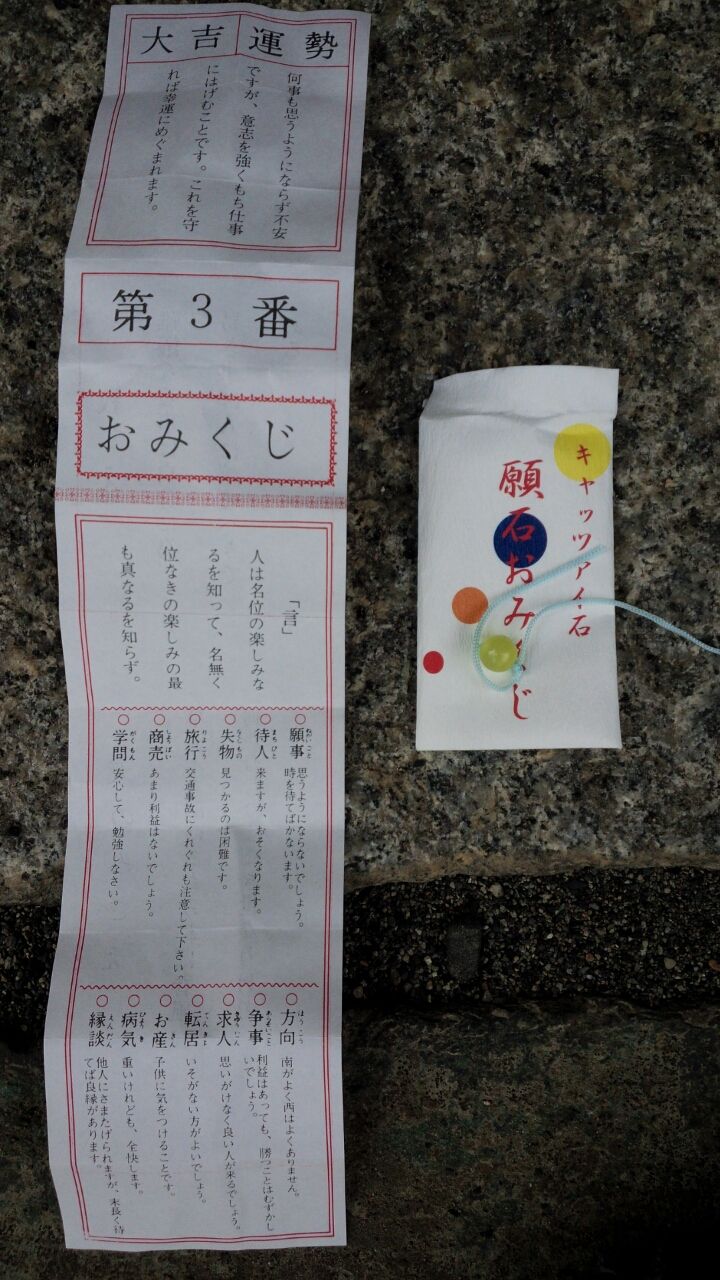 大吉運勢
何事も思うようにならず不安
ですが、意志を強くもち仕事
にはげむことです。これを守
れば幸運にめぐまれます。
第3番
おみくじ
「言」
人は名位の楽しみな
るを知って、名無く
位なきの楽しみの最
も真なるを知らず。
願事 ねがいごと 思うようにならないでしょう。
時を待てばかないます。
待人 まちびと 来ますが、おそくなります。
失物 うしもの 見つかるのは困難です。
旅行 りょこう 交通事故にくれぐれも注意して下さい。
商売 しょうばい あまり利益はないでしょう。
学問 がくもん 安心して、勉強しなさい。
方向 ほうこう 南がよく西はよくありません。
争事 あらそいごと 利益はあっても、勝つことはむずかし
いでしょう。
求人 きゅうじん 思いがけなく良い人が来るでしょう。
転居 てんきょ いそがない方がよいでしょう。
お産 さん 子供に気をつけることです。
病気 びょうき 重いけれども、全快します。
縁談 えんだん 他人にさまたげられますが、末長く待
てば良縁があります。
キャッツアイ石
願石おみくじ